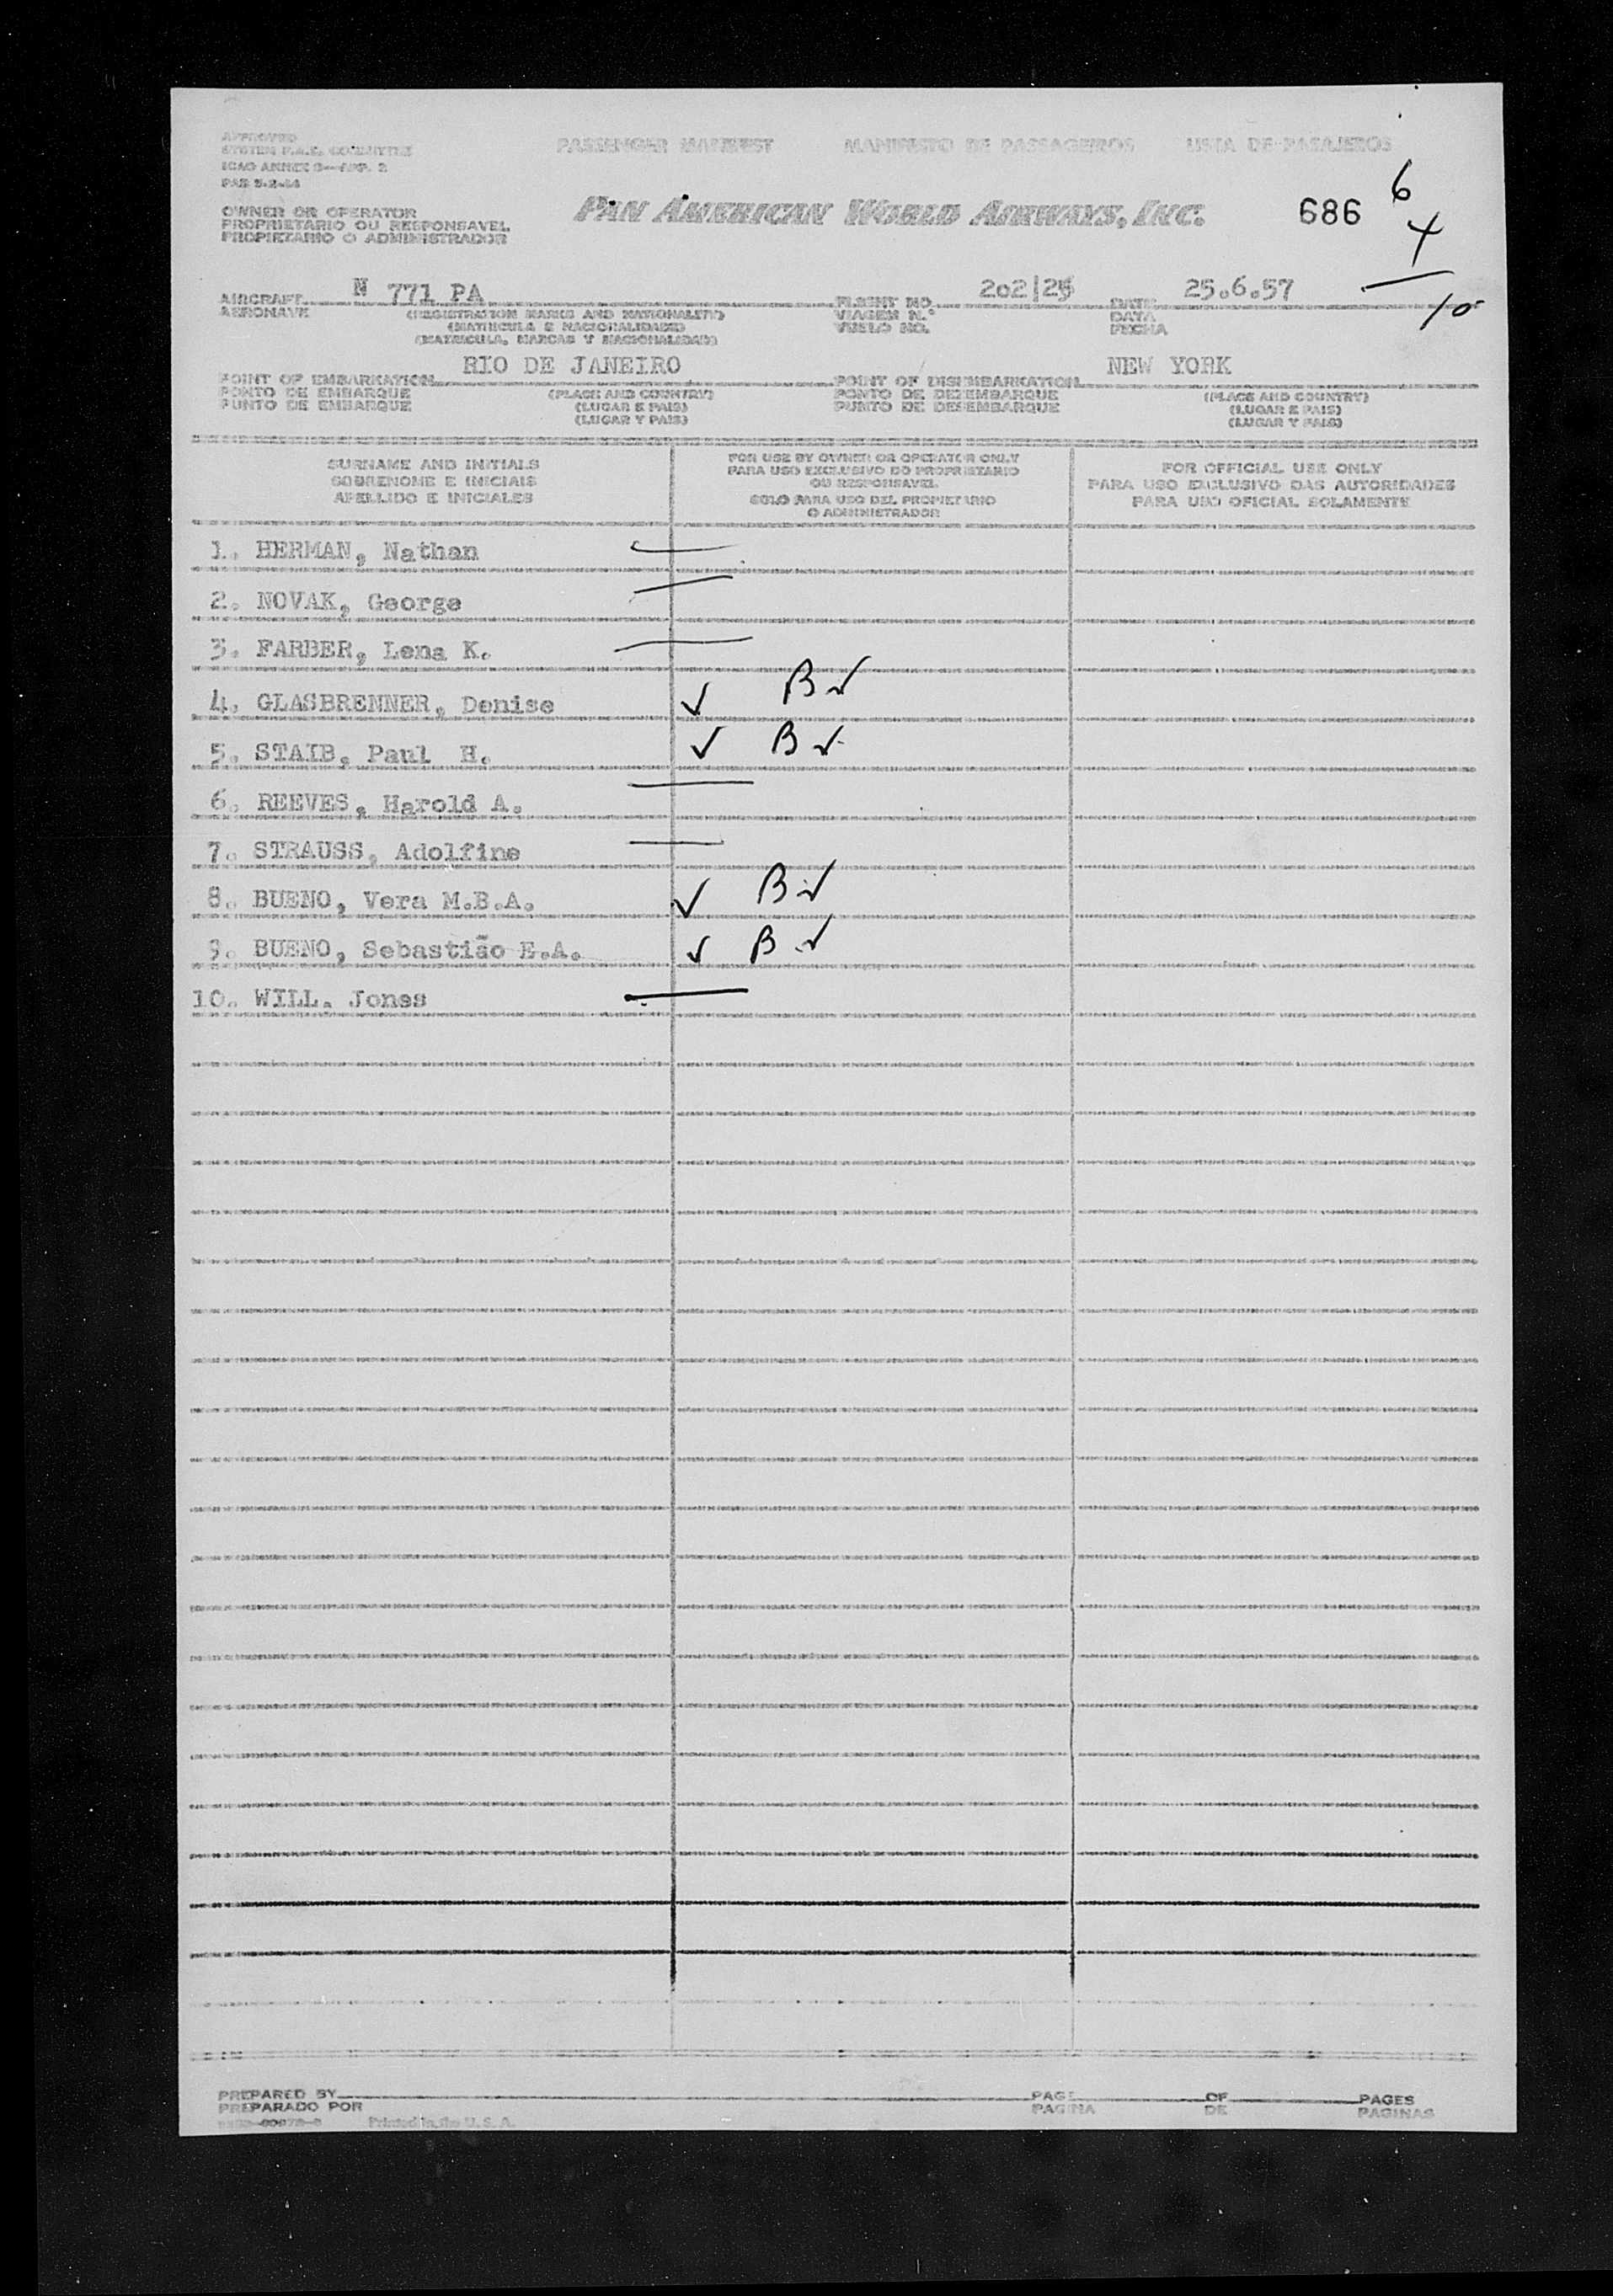 APPROVED
SYSTEM F.A.L. COMMITTEE
ICAO ANNEX 9—APP. 2
PASSENGER MANIFEST MANIFESTO DE PASSAGEIROS LISTA DE PASAJEROS
OWNER OR OPERATOR
PROPRIETARIO OU RESPONSAVEL
PROPIETARIO O ADMINISTRADOR
PAN AMERICAN WORLD AIRWAYS, INC.
686
6
4
10
AIRCRAFT N 771 PA FLIGHT NO. 202|25 DATE 25.6.57
AERONAVE (REGISTRATION MARKS AND NATIONALITY) VIAGEM N.° DATA
(MATRICULA E NACIONALIDADE) VUELO NO. FECHA
(MATRICULA, MARCAS Y NACIONALIDAD)
RIO DE JANEIRO NEW YORK
POINT OF EMBARKATION POINT OF DISEMBARKATION
PONTO DE EMBARQUE (PLACE AND COUNTRY) PONTO DE DEZEMBARQUE (PLACE AND COUNTRY)
PUNTO DE EMBARQUE (LUGAR E PAIS) PUNTO DE DESEMBARQUE (LUGAR E PAIS)
(LUGAR Y PAIS) (LUGAR Y PAIS)
SURNAME AND INITIALS
SOBRENOME E INICIAIS
APELLIDO E INICIALES
FOR USE BY OWNER OR OPERATOR ONLY
PARA USO EXCLUSIVO DO PROPRIETARIO
OU RESPONSAVEL
SOLO PARA USO DEL PROPIETARIO
O ADMINISTRADOR
FOR OFFICIAL USE ONLY
PARA USO EXCLUSIVO DAS AUTORIDADES
PARA USO OFICIAL SOLAMENTE
1. HERMAN, Nathan
2. NOVAK, George
3. FARBER, Lena K.
4. GLASBRENNER, Denise ✓ B ✓
5. STAIB, Paul H. ✓ B ✓
6. REEVES, Harold A.
7. STRAUSS, Adolfine
8. BUENO, Vera M.B.A. ✓ B ✓
9. BUENO, Sebastião E.A. ✓ B ✓
10. WILL, Jones
PREPARED BY PAGE OF PAGES
PREPARADO POR PAGINA DE PAGINAS
Printed in the U. S. A.